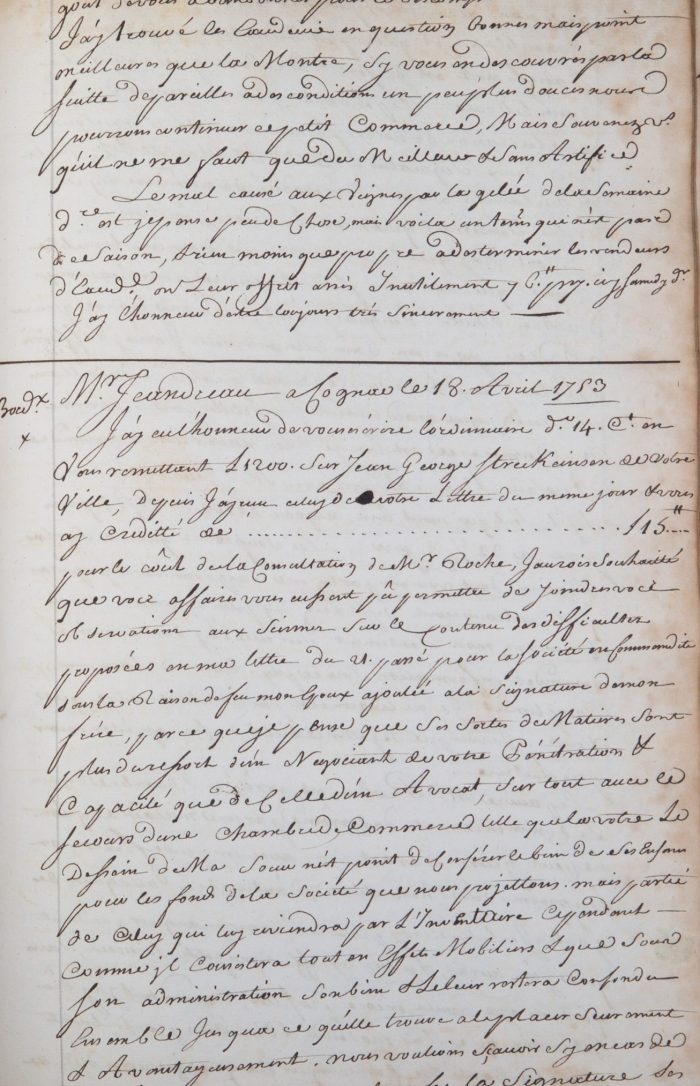 J'ay trouvé les Eaudevie en question bonnes mais point
meilleures que la Montre, Sy vous en descouvrés par la
suitte de pareilles a des conditions un peu plus douces nous
pourrons continuer ce petit Commerce, Mais Souvenez v.s
qu'il ne me faut que du Meilleur & Sans Artifice
Le mal causé aux Vignes par la gelée de la Semaine
d.re est je pense peu de Chose, mais voila un tems qui n'est pas
de Saison, & rien moins que propre a desterminer les vendeurs
d'Eaud.e on Leur offrit assés Inutilement
J'ay l'honneur d'etre toujours trés Sincerement
Bord.x
x
M.r Jeandreau a Cognac le 18. Avril 1753
J'ay eu l'honneur de vous écrire l'ordinnaire d.r 14. C.t en
Vous remettant £1200. Sur Jean George Streckeinsen de Votre
Ville, depuis J'ay eu celuy de votre Lettre du meme jour & vous
ay Creditté de ........................ £15.
pour le coût de la Consultation de M.r Roche, J'aurois Souhaitté
que voce affaires vous eussent pû permettre de Joindre voce
observations aux Siennes Sur le Contenu des difficultez
proposées en ma lettre du 21. passé pour la Société en Commandite
sous la Raison de feu mon Epoux ajoutée a la Signature de mon
frére, parce que je pense que Ses Sortes de Matieres Sont
plus du ressort d'un Negociant de votre Pénétration &
Capacité que de Celle d'un Avocat, Sur tout avec le
secours d'une Chambre de Commerce telle que la votre Le
Dessein de Ma Soeur n'est point de Conférer le bien de Ses Enfans
pour les fonds de la Société que nous projettons. mais partie
de Celuy qui luy reviendra par L'Inventaire Cependant
Comme il Consistera tout en Effets Mobiliers & que Sous
Son administration Son bien & le leur restera Confondu
Ensemble Jusqua ce qu'elle trouve a le placer Seurement
& Avantageusement. nous voulions Sçavoir Sy en cas de
la Signature Ses